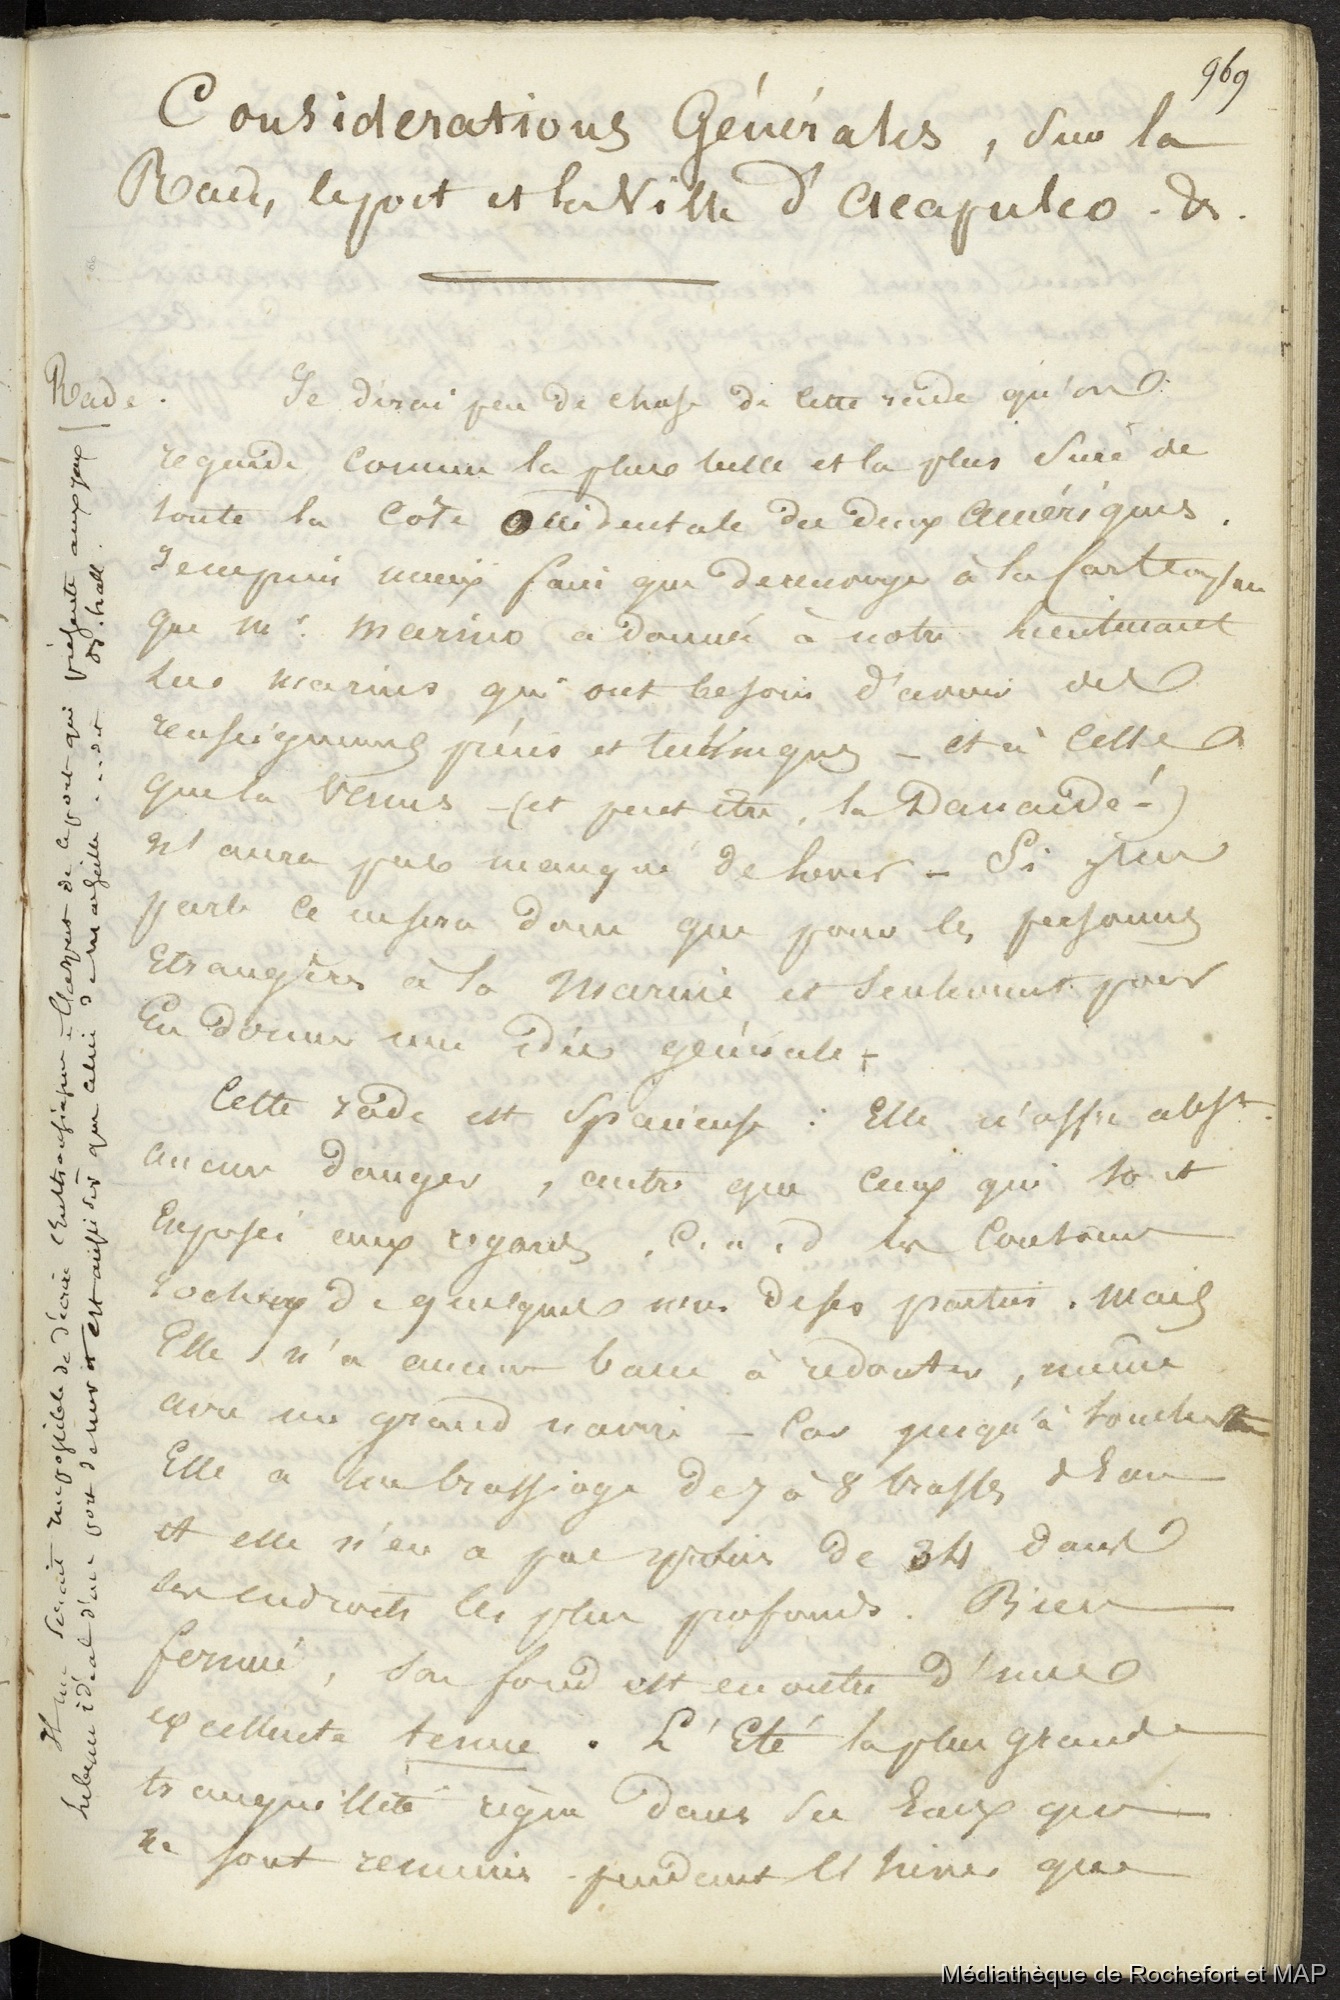 969
Considerations Générales, sur la
Rade, le port et la Ville d'Acapulco . &.
Rade.
Je dirai peu de chose de cette rade qu'on
regarde comme la plus belle et la plus sure de
toute la Côte Occidentale des deux Amériques.
Je ne puis mieux faire que de renvoyer à la Carte
que Mr. Marino a donnée à notre lieutenant
les marins qui ont besoin d'avoir des
renseignemens précis et techniques - et à celle
que la Venus - (et peut etre, la Danaide !)
n'aura pas manqué de lever - Si j'en
parle ce ne sera donc que pour les personnes
Etrangères à la Marine et seulement pour
En donner une idée générale -
Cette rade est Spacieuse : Elle n'offre abst.
aucun danger, autre que ceux qui sont
Exposés aux regards, C. a. d les Contours
rocheux de quelques unes de ses parties. Mais
Elle n'a aucun banc à redouter, même
avec un grand navire - Car jusqu'à toucher
Elle a un brassiage de 7 à 8 brasses d'Eau
et elle n'en a pas plus de 34 dans
ses endroits les plus profonds. Bien
fermée, son fond est en outre d'une
excellente tenue. L'Eté la plus grande
tranquillité règne dans ses Eaux qui
ne sont remuées pendant l'hiver que
Il me serait impossible de décrire l'Enthousiasme - L'aspect de ce port qui présente aux yeux
le beau idéal d'un port de mer et est aussi sûr que celui de Marseille
Médiathèque de Rochefort et MAP